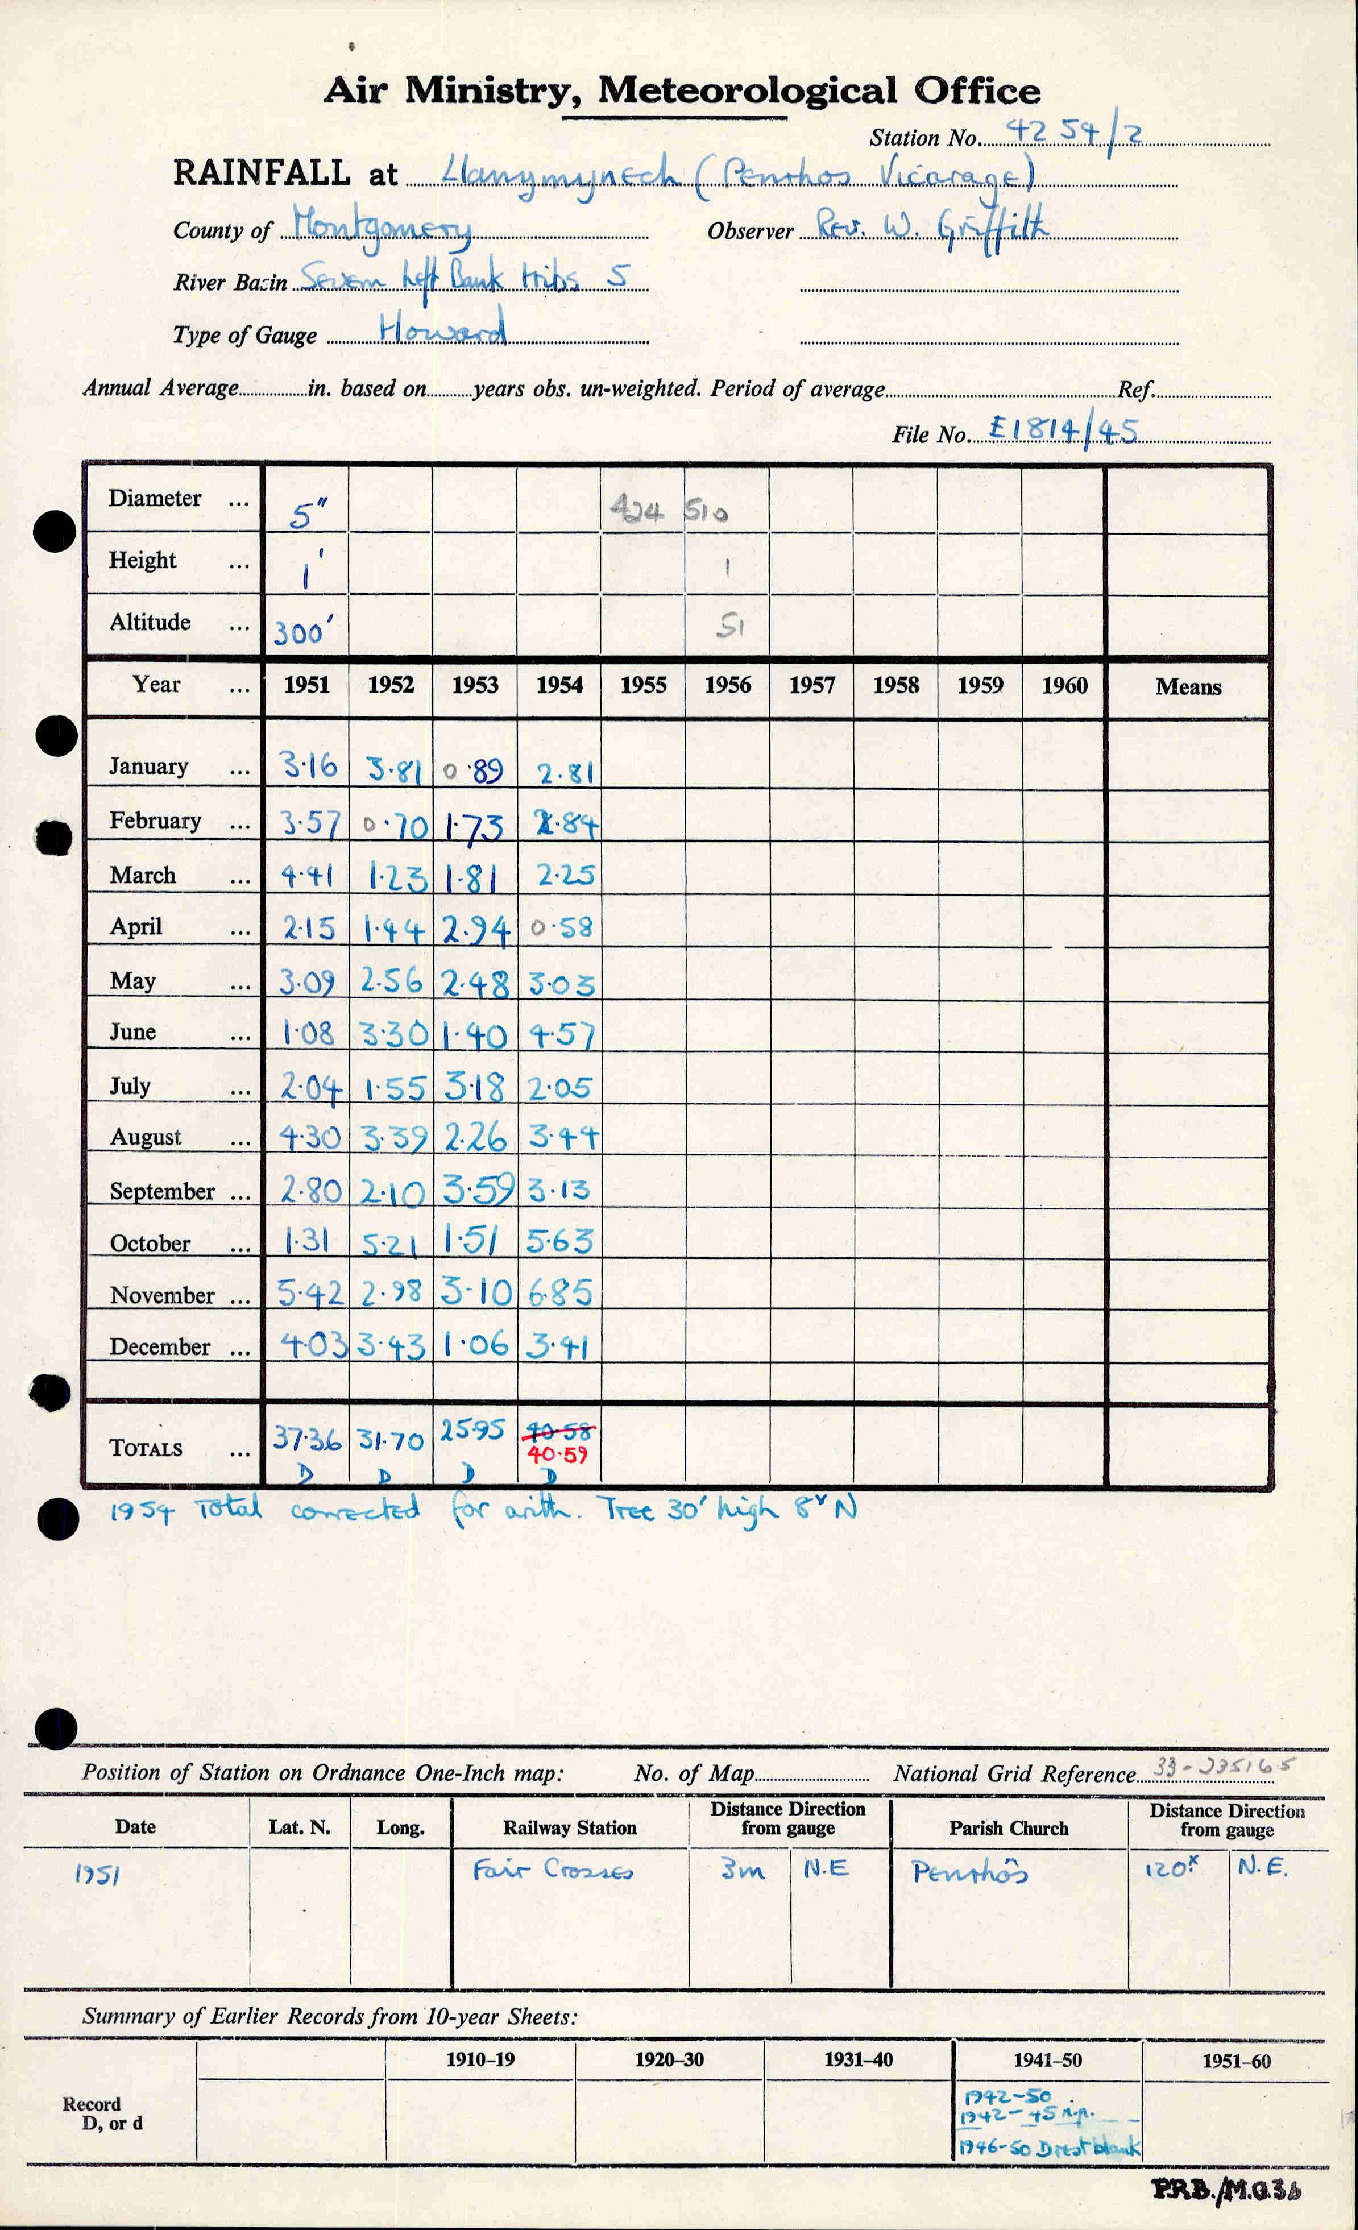 Air Ministry, Meteorological Office
Station No. 4254/2
RAINFALL at Llanymynech (Penrhos Vicarage)
County of Montgomery Observer Rev. W. Griffith
River Basin Severn Left Bank tribs 5
Type of Gauge Howard
Annual Average in. based on years obs. un-weighted. Period of average Ref.
File No. E1814/45
Diameter ... 5" 424 510
Height ... 1' 1
Altitude ... 300' 51
Year ... 1951 1952 1953 1954 1955 1956 1957 1958 1959 1960 Means
January ... 3.16 3.81 0.89 2.81
February ... 3.57 0.70 1.73 2.84
March ... 4.41 1.23 1.81 2.25
April ... 2.15 1.44 2.94 0.58
May ... 3.09 2.56 2.48 3.03
June ... 1.08 3.30 1.40 4.57
July ... 2.04 1.55 3.18 2.05
August ... 4.30 3.39 2.26 3.44
September ... 2.80 2.10 3.59 3.13
October ... 1.31 5.21 1.51 5.63
November ... 5.42 2.98 3.10 6.85
December ... 4.03 3.43 1.06 3.41
TOTALS ... 37.36 31.70 25.95 40.58
40.59
D D D D
1954 Total corrected for arith. Tree 30' high 8y N
Position of Station on Ordnance One-Inch map: No. of Map National Grid Reference 33-235165
Date Lat. N. Long. Railway Station Distance Direction from gauge Parish Church Distance Direction from gauge
1951 Four Crosses 3m N.E Penrhôs 120x N.E.
Summary of Earlier Records from 10-year Sheets:
1910–19 1920–30 1931–40 1941–50 1951–60
Record
D, or d
1942-50
1942-45 n.p.
1946-50 D rest blank
P.R.B./M.O.3b